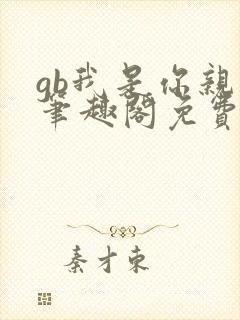 gb我是你親
筆趣閣免費
秦才東